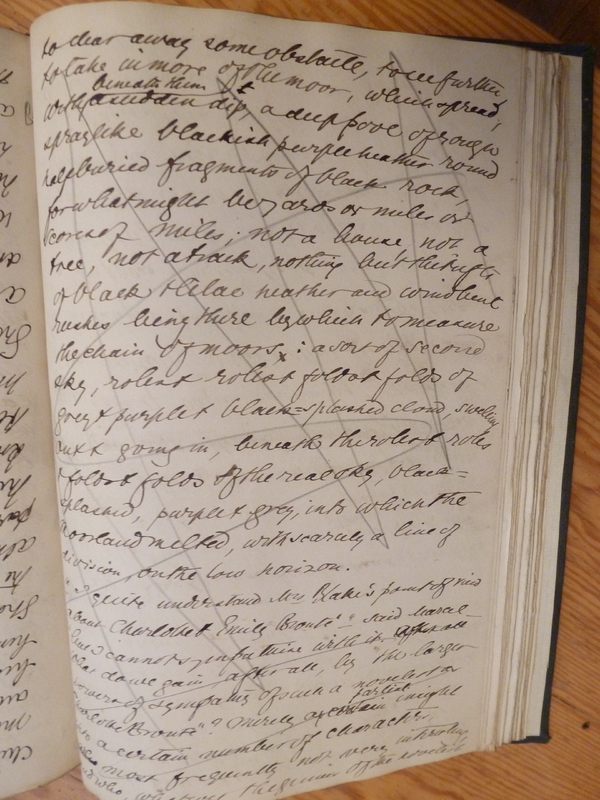 to clear away some obstacle, to see further,
to take in more of the moor, which spread,
beneath them
with a sudden dip, a deep pool of rough
spraylike blackish purple heather round
half buried fragments of black rock,
for what might be yards or miles or
scores of miles; not a house not a
tree, not a track, nothing but the tufts
of black & lilac heather and wind bent
rushes being there by which to measure
the chain of moors x: a sort of second
sky, rolls & rolls & folds & folds of
grey & purple & black=splashed cloud, swelling
out & going in, beneath the rolls & rolls
& folds & folds of the real sky, black=
splashed, purple & grey, into which the
moorland melted, with scarcely a line of
division on the low horizon.
"I quite understand Mrs Blake's point of view
about Charlotte & Emily Brontë" said Marcel
"but I cannot sympathise with it.
What do we gain after all, by the larger
powers of sympathy of such a novelist as
Charlotte Brontë"? Merely a partial insight
into a certain number of characters,
most frequently not very interesting